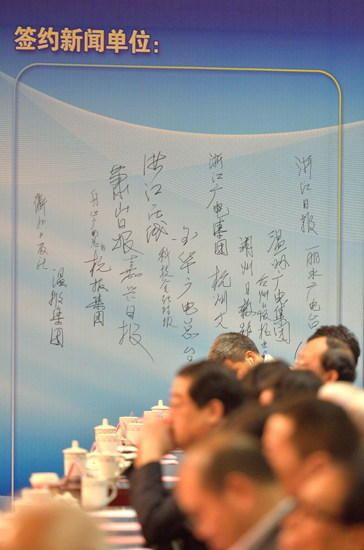 签约新闻单位：
浙江日报
丽水广电台
温州广电集团
台州日报社
湖州日报
浙江广电集团
杭州
浙江在线
科技金融时报
金华广电总台
萧山日报
嘉兴日报
杭报集团
衢州日报社
温报集团